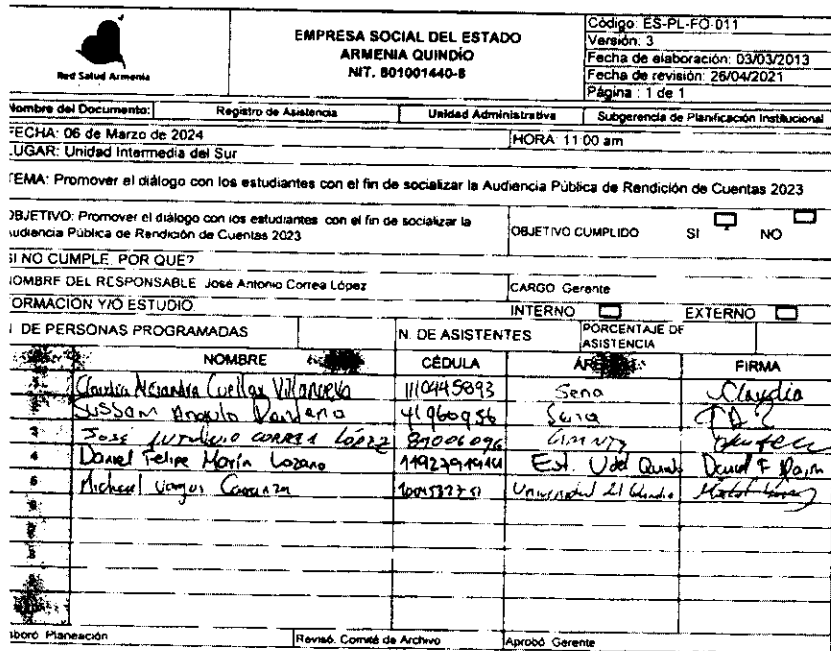 Red Salud Armenia
EMPRESA SOCIAL DEL ESTADO
ARMENIA QUINDÍO
NIT. 801001440-8
Código: ES-PL-FO-011
Versión: 3
Fecha de elaboración: 03/03/2013
Fecha de revisión: 26/04/2021
Página : 1 de 1
Nombre del Documento: Registro de Asistencia Unidad Administrativa Subgerencia de Planificación Institucional
FECHA: 06 de Marzo de 2024 HORA: 11:00 am
LUGAR: Unidad Intermedia del Sur
TEMA: Promover el diálogo con los estudiantes con el fin de socializar la Audiencia Pública de Rendición de Cuentas 2023
OBJETIVO: Promover el diálogo con los estudiantes con el fin de socializar la
Audiencia Pública de Rendición de Cuentas 2023
OBJETIVO CUMPLIDO SI NO
SI NO CUMPLE, POR QUE?
NOMBRE DEL RESPONSABLE José Antonio Correa López CARGO Gerente
FORMACIÓN Y/O ESTUDIO INTERNO EXTERNO
N DE PERSONAS PROGRAMADAS N. DE ASISTENTES PORCENTAJE DE
ASISTENCIA
NOMBRE CÉDULA FIRMA
Claudia Alejandra Cuellar Villanueva 1110445893 Sena Claudia
Sussam Angulo 41960956 Sena
José correa López 89006096
4 Daniel Felipe Marín Lozano Est. U del Quindío Daniel F
5 Michael Vargas Universidad del Quindío
Elaboró: Planeación Revisó. Comité de Archivo Aprobó Gerente